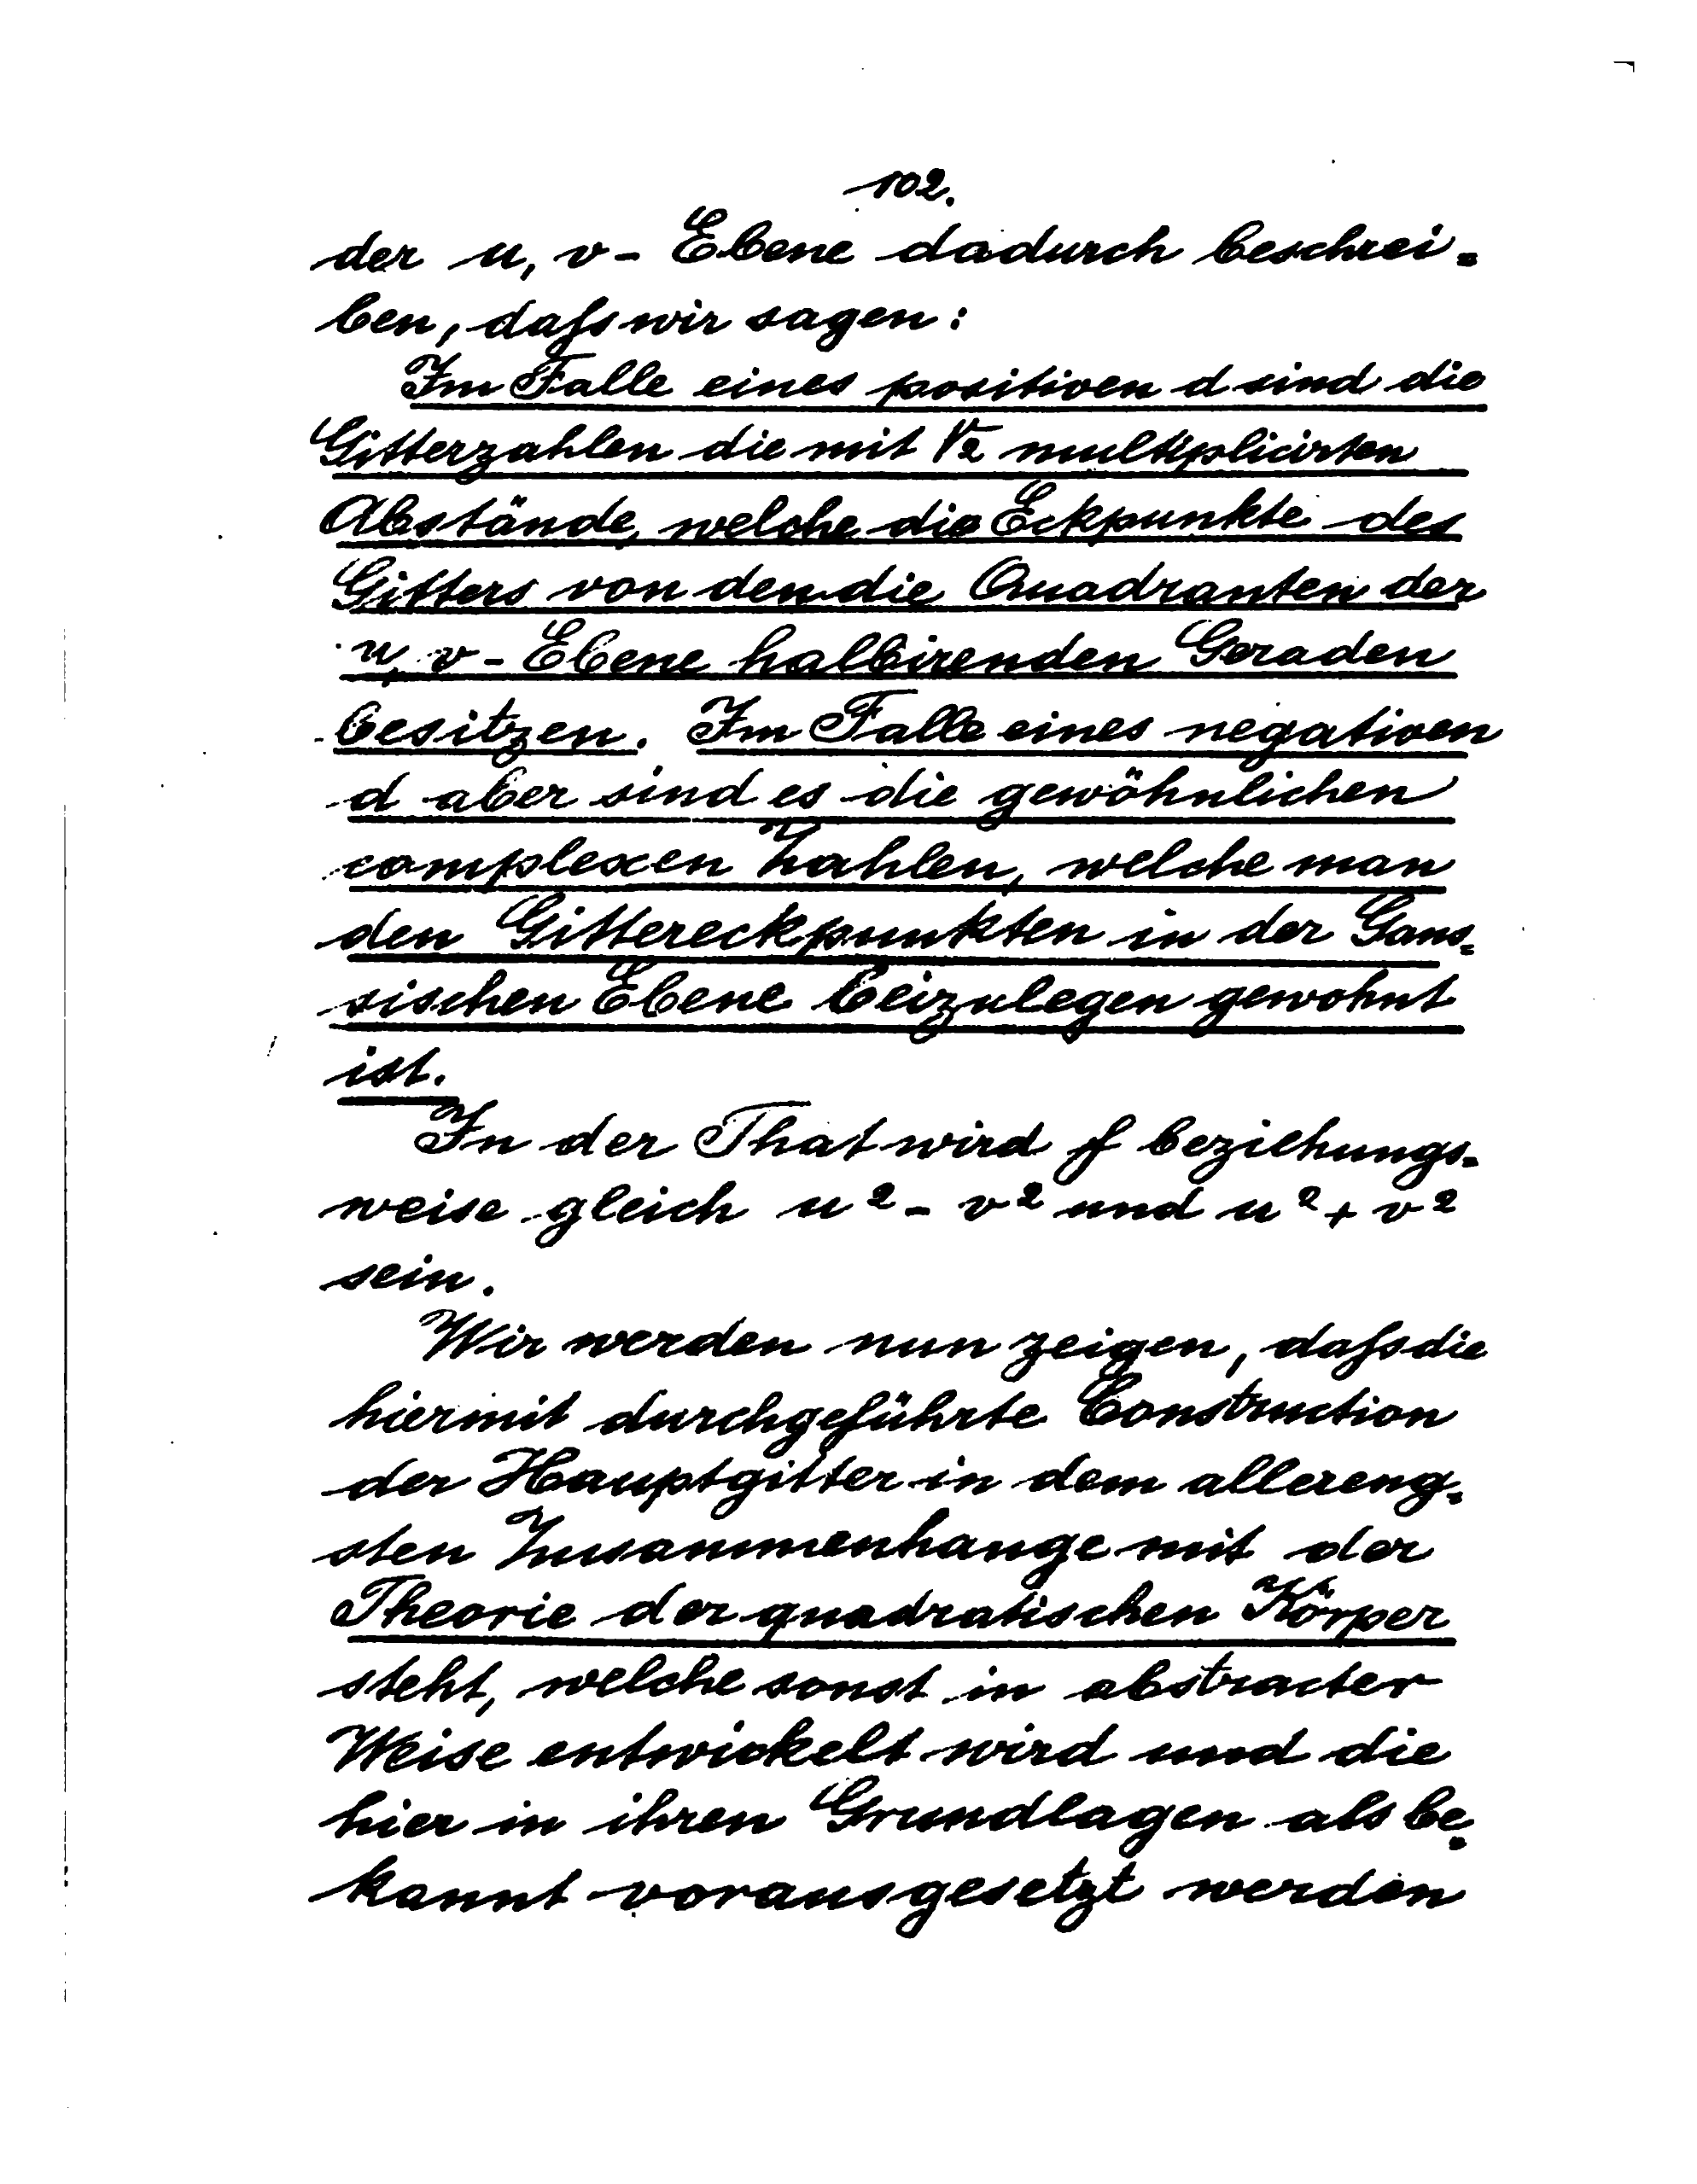 102.
der u, v - Ebene dadurch beschrei-
ben, daſs wir sagen:
Im Falle eines positiven d sind die
Gitterzahlen die mit √2 multiplicirten
Abstände, welche die Eckpunkte des
Gitters von den die Quadranten der
u, v - Ebene halbirenden Geraden
besitzen. Im Falle eines negativen
d aber sind es die gewöhnlichen
complexen Zahlen, welche man
den Gittereckpunkten in der Gaus-
sischen Ebene beizulegen gewohnt
ist.
In der That wird f beziehungs-
weise gleich u² - v² und u² + v²
sein.
Wir werden nun zeigen, daſs die
hiermit durchgeführte Construction
der Hauptgitter in dem allereng-
sten Zusammenhange mit der
Theorie der quadratischen Körper
steht, welche sonst in abstracter
Weise entwickelt wird und die
hier in ihren Grundlagen als be-
kannt vorausgesetzt werden